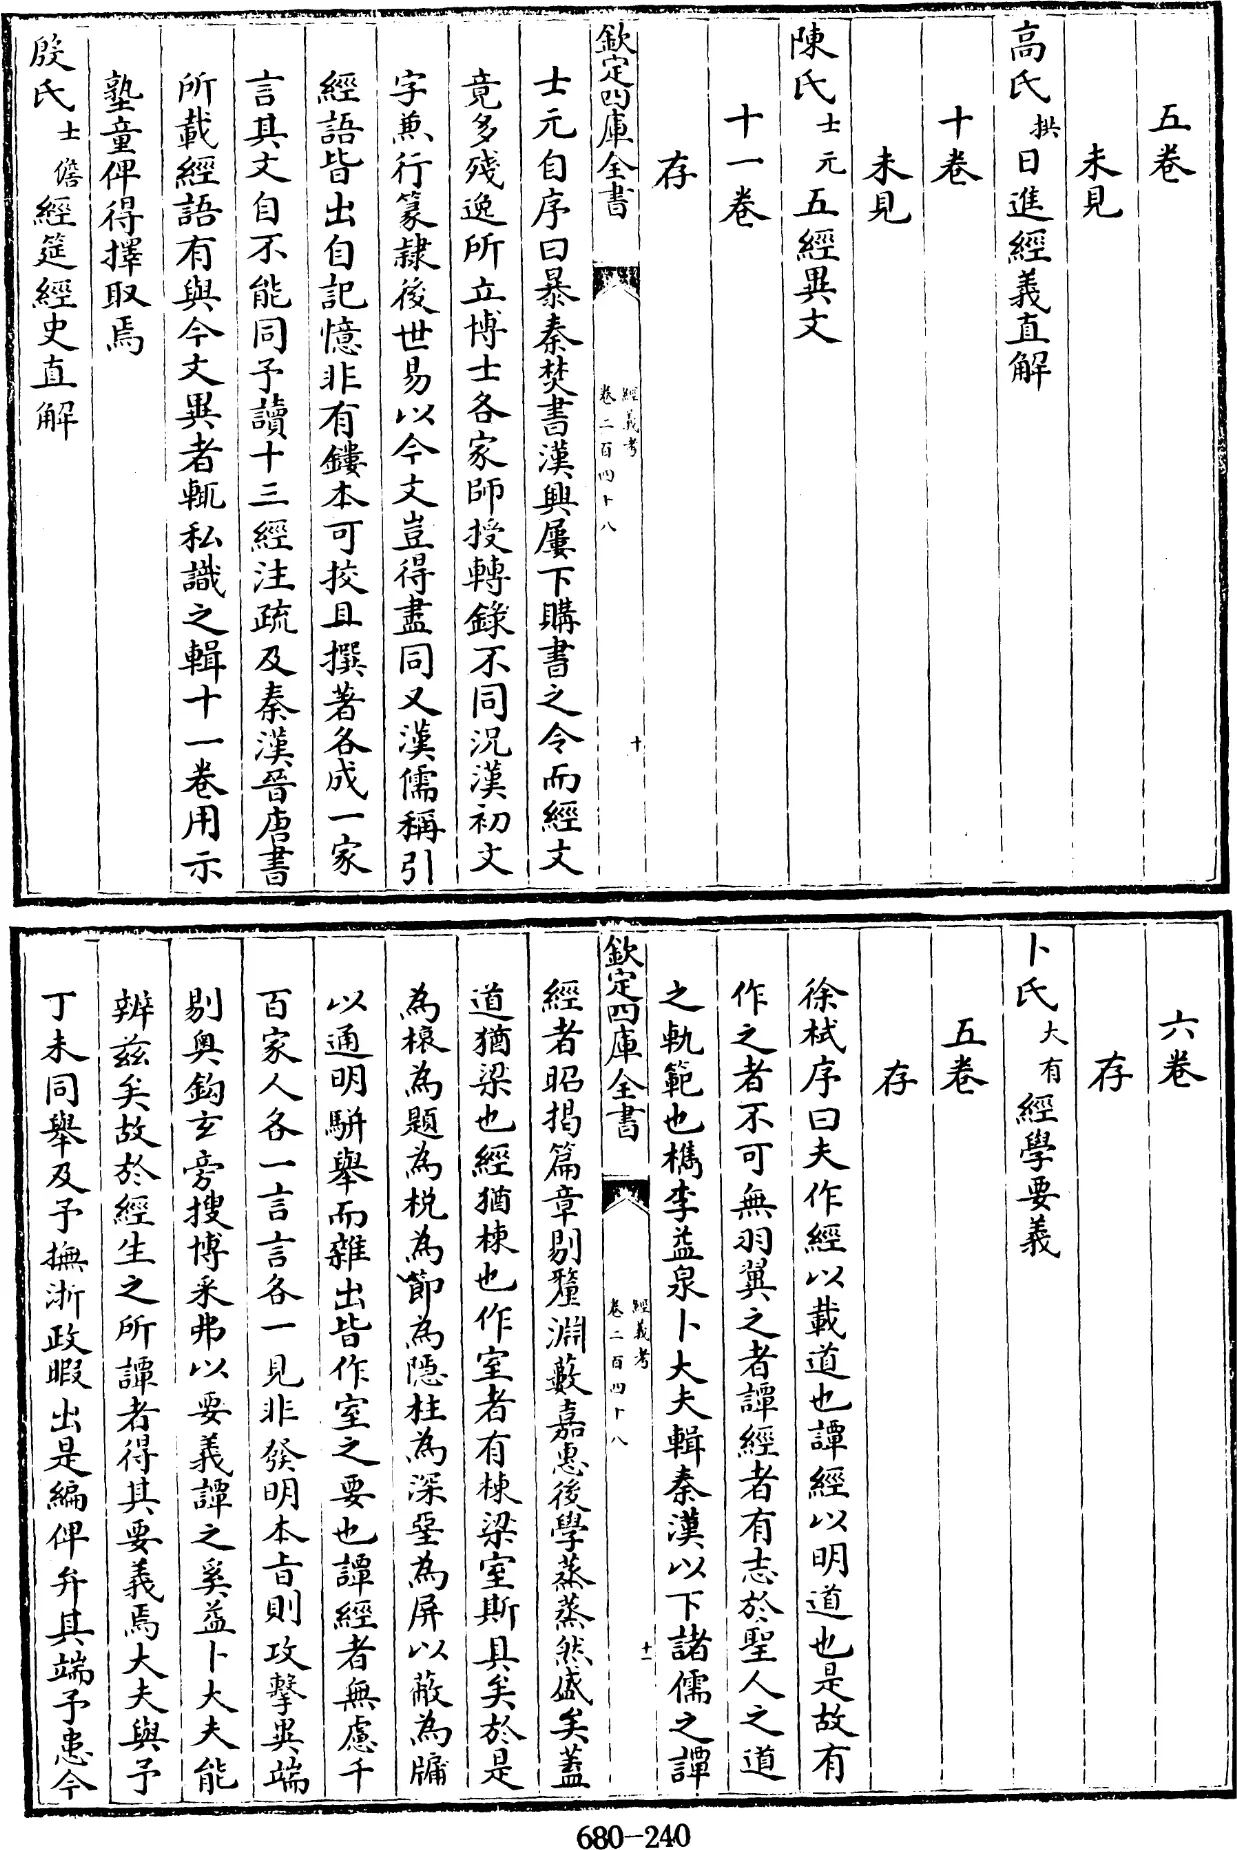 五卷
未見
高氏拱日進經義直解
十卷
未見
陳氏士元五經異文
十一卷
存
欽定四庫全書
經義考
卷二百四十八
十
士元自序曰暴秦焚書漢興屢下購書之令而經文
竟多殘逸所立博士各家師授轉錄不同況漢初文
字兼行篆隸後世易以今文豈得盡同又漢儒稱引
經語皆出自記憶非有鏤本可挍且撰著各成一家
言其文自不能同予讀十三經注疏及秦漢晉唐書
所載經語有與今文異者輒私識之輯十一卷用示
塾童俾得擇取焉
殷氏士儋經筵經史直解
六卷
存
卜氏大有經學要義
五卷
存
徐栻序曰夫作經以載道也譚經以明道也是故有
作之者不可無羽翼之者譚經者有志於聖人之道
之軌範也檇李益泉卜大夫輯秦漢以下諸儒之譚
欽定四庫全書
經義考
卷二百四十八
十一
經者昭揭篇章剔釐淵藪嘉惠後學蒸蒸然盛矣蓋
道猶梁也經猶棟也作室者有棟梁室斯具矣於是
為榱為題為梲為節為隱柱為深堊為屏以蔽為牖
以通明駢舉而雜出皆作室之要也譚經者無慮千
百家人各一言言各一見非發明本旨則攻擊異端
剔奥鈎玄旁搜博采弗以要義譚之奚益卜大夫能
辨茲矣故於經生之所譚者得其要義焉大夫與予
丁未同舉及予撫浙政暇出是編俾弁其端予惠今
680-240